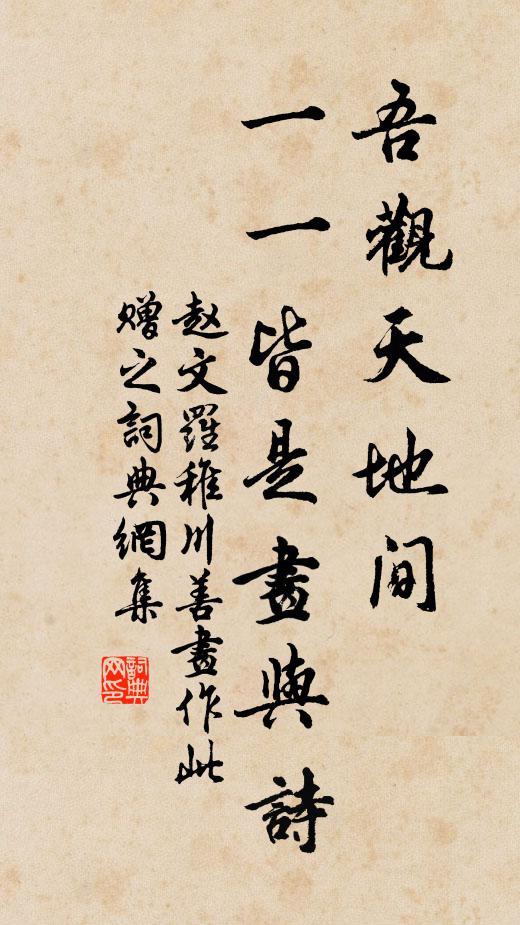 吾觀天地間
一一皆是畫與詩
赵文羅稚川善畫作此
赠之詞典網集
詞典
网印